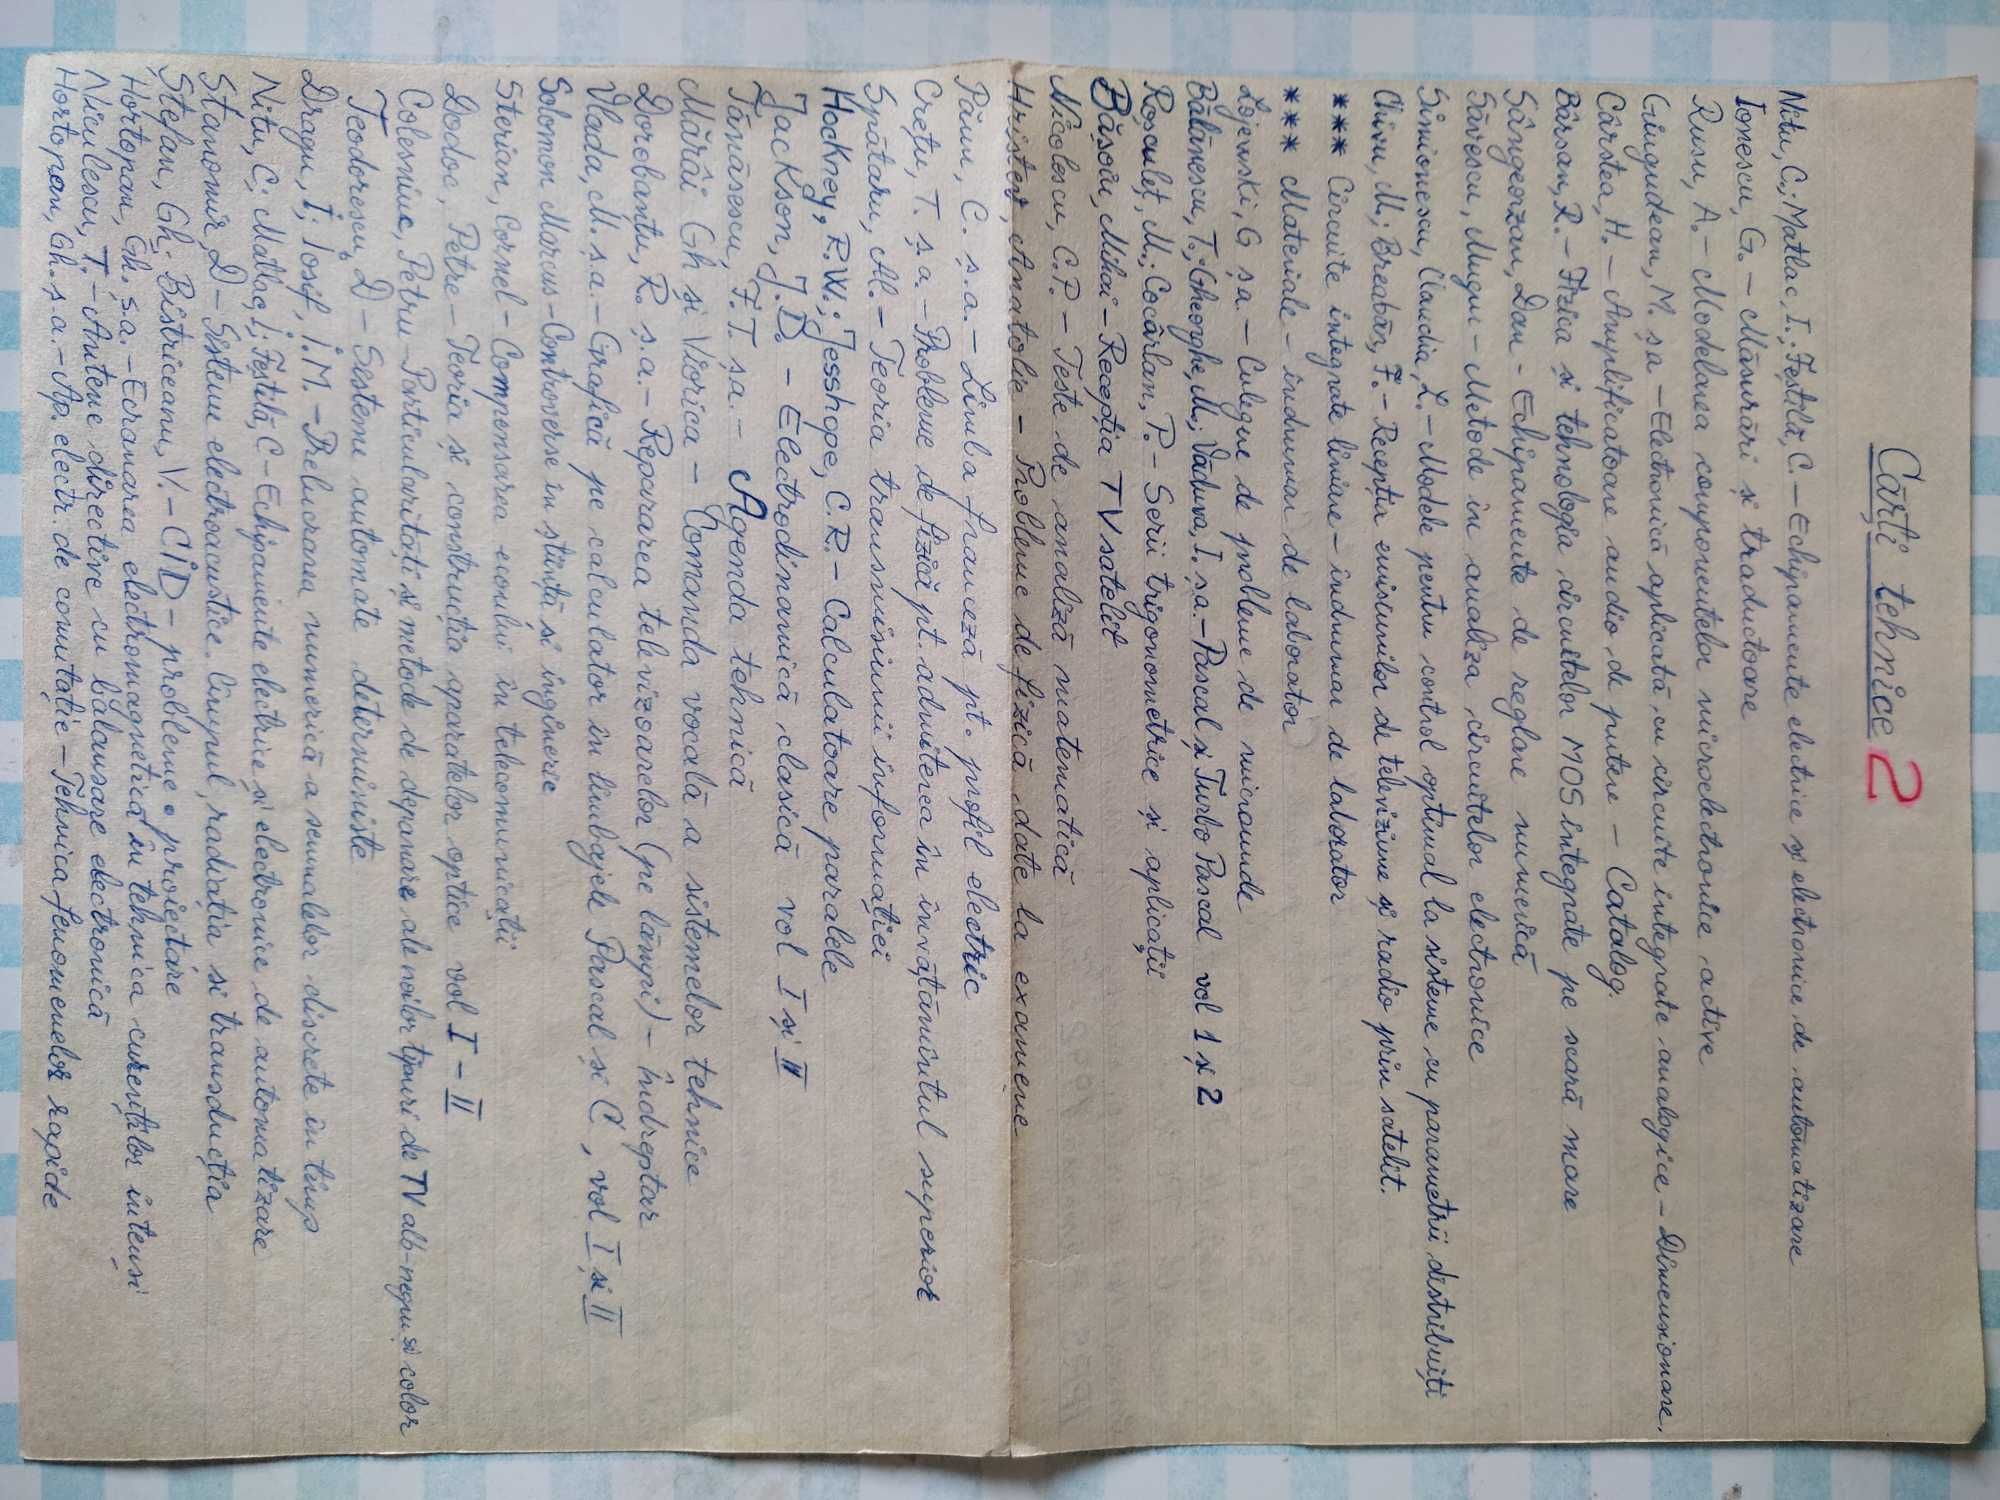 Cărți tehnice 2
Nitu, C.; Matlac, I.; Feștilă, C. – Echipamente electrice și electronice de automatizare
Ionescu, G. – Măsurări și traductoare
Rusu, A. – Modelarea componentelor microelectronice active
Gringudean, M. ș.a – Electronică aplicată cu circuite integrate analogice – Dimensionare.
Cârstea, H. – Amplificatoare audio de putere – Catalog.
Bârsan, R. – Fizica și tehnologia circuitelor MOS integrate pe scară mare
Sângeorzan, Dan – Echipamente de reglare numerică
Săvescu, Mugur – Metode în analiza circuitelor electronice
Simionescu, Claudia, L. – Modele pentru control optimal la sisteme cu parametrii distribuiți
Chivu, M.; Breabăn, F. – Recepția emisiunilor de televiziune și radio prin satelit.
*** Circuite integrate liniare – îndrumar de laborator
*** Materiale – îndrumar de laborator
Lojewski, G ș.a. – Culegere de probleme de microunde
Bălănescu, T.; Gheorghe, M.; Văduva, I. ș.a. – Pascal și Turbo Pascal vol 1 și 2
Roșculeț, M.; Cocârlan, P. – Serii trigonometrice și aplicații
Bășoiu, Mihai – Recepția TV satelit
Nicolescu, C.P. – Teste de analiză matematică
Hristev, Anatolie – Probleme de fizică date la examene
Păun, C. ș.a. – Limba franceză pt. profil electric
Crețu, T. ș.a. – Probleme de fizică pt. admiterea în învățămîntul superior
Spătaru, Al. – Teoria transmisiunii informației
Hockney, R.W.; Jesshope, C.R. – Calculatoare paralele
Jackson, J.D. – Electrodinamică clasică vol I și II
Tănăsescu, F.T. ș.a. – Agenda tehnică
Mărăi Gh și Viorica – Comanda vocală a sistemelor tehnice
Dorobanțu, R. ș.a. – Repararea televizoarelor (pe lămpi) – îndreptar
Vlada, M. ș.a – Grafică pe calculator în limbajele Pascal și C, vol I și II
Solomon Marcus – Controverse în știință și inginerie
Sterian, Cornel – Compensarea ecoului în telecomunicații
Dodoc, Petre – Teoria și construcția aparatelor optice vol I – II
Colesniuc, Petru – Particularități și metode de depanare ale noilor tipuri de TV alb-negru și color
Teodorescu, D – Sisteme automate deterministe
Dragu, I; Iosif, I.M. – Prelucrarea numerică a semnalelor discrete în timp
Nitu, C; Matlac, I; Feștilă, C – Echipamente electrice și electronice de automatizare
Stanomir, D – Sisteme electroacustice. Cîmpul, radiația și transducția
Ștefan, Gh.; Bistriceanu, V. – CID – probleme. proiectare
Hortopan, Gh. ș.a. – Ecranarea electromagnetică în tehnica curenților intenși
Niculescu, T. – Antene directive cu balansare electronică
Hortopan, Gh. ș.a. – Ap. electr. de comutație – Tehnica fenomenelor rapide